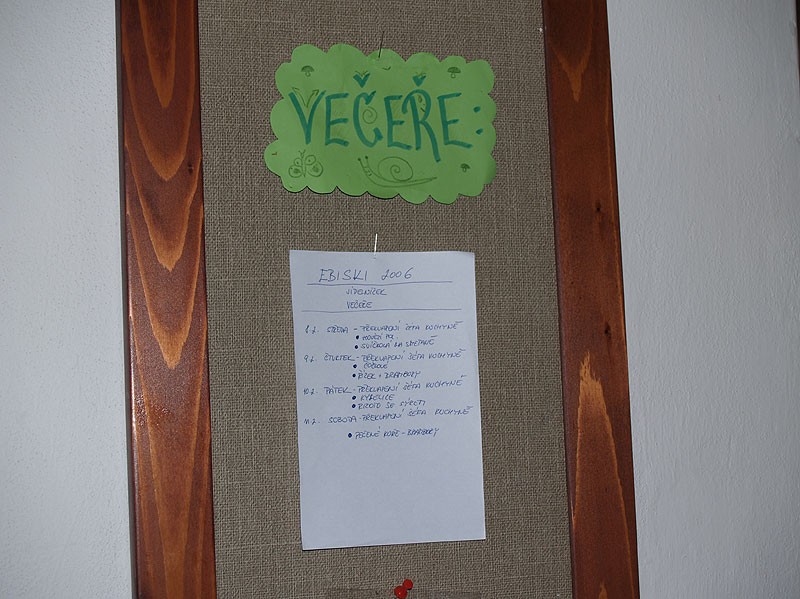 VEČEŘE:
EBISKI 2006
JÍDELNÍČEK
VEČEŘE
8.2. STŘEDA - PŘEKVAPENÍ ŠÉFA KUCHYNĚ
• HOVĚZÍ POL.
• SVÍČKOVÁ NA SMETANĚ
9.2. ČTVRTEK - PŘEKVAPENÍ ŠÉFA KUCHYNĚ
• ČOČKOVÁ
• ŘÍZEK + BRAMBORY
10.2. PÁTEK - PŘEKVAPENÍ ŠÉFA KUCHYNĚ
• RIZOTO SE SÝREM
11.2. SOBOTA - PŘEKVAPENÍ ŠÉFA KUCHYNĚ
• PEČENÉ KUŘE - BRAMBORY